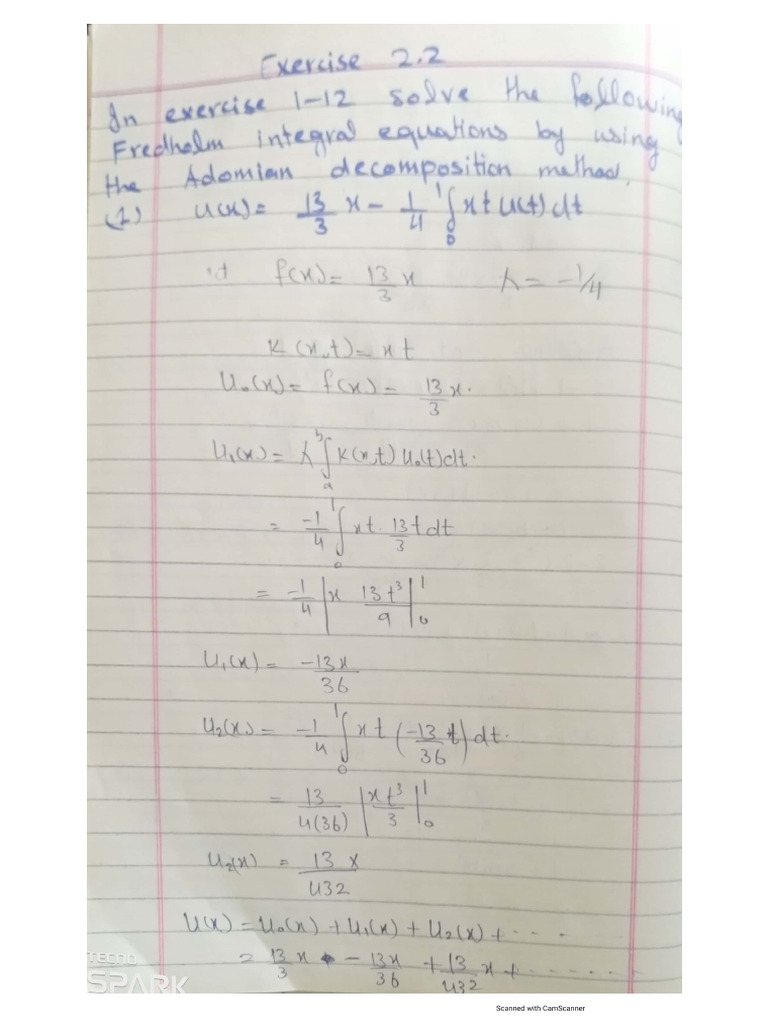 Exercise 2.2
In exercise 1-12 solve the following
Fredholm integral equations by using
the Adomian decomposition method.
(1) u(x) = 13/3 x - 1/4 ∫₀¹ xt u(t) dt
f(x) = 13/3 x λ = -1/4
K(x,t) = xt
u₀(x) = f(x) = 13/3 x.
u₁(x) = λ ∫ₐᵇ K(x,t) u₀(t) dt.
= -1/4 ∫₀¹ xt. 13/3 t dt
= -1/4 |x 13t³/9|₀¹
u₁(x) = -13x/36
u₂(x) = -1/4 ∫₀¹ xt (-13/36 t) dt.
= 13/4(36) |xt³/3|₀¹
u₂(x) = 13x/432
u(x) = u₀(x) + u₁(x) + u₂(x) + ....
= 13/3 x - 13x/36 + 13/432 x + ......
TECNO
SPARK
Scanned with CamScanner